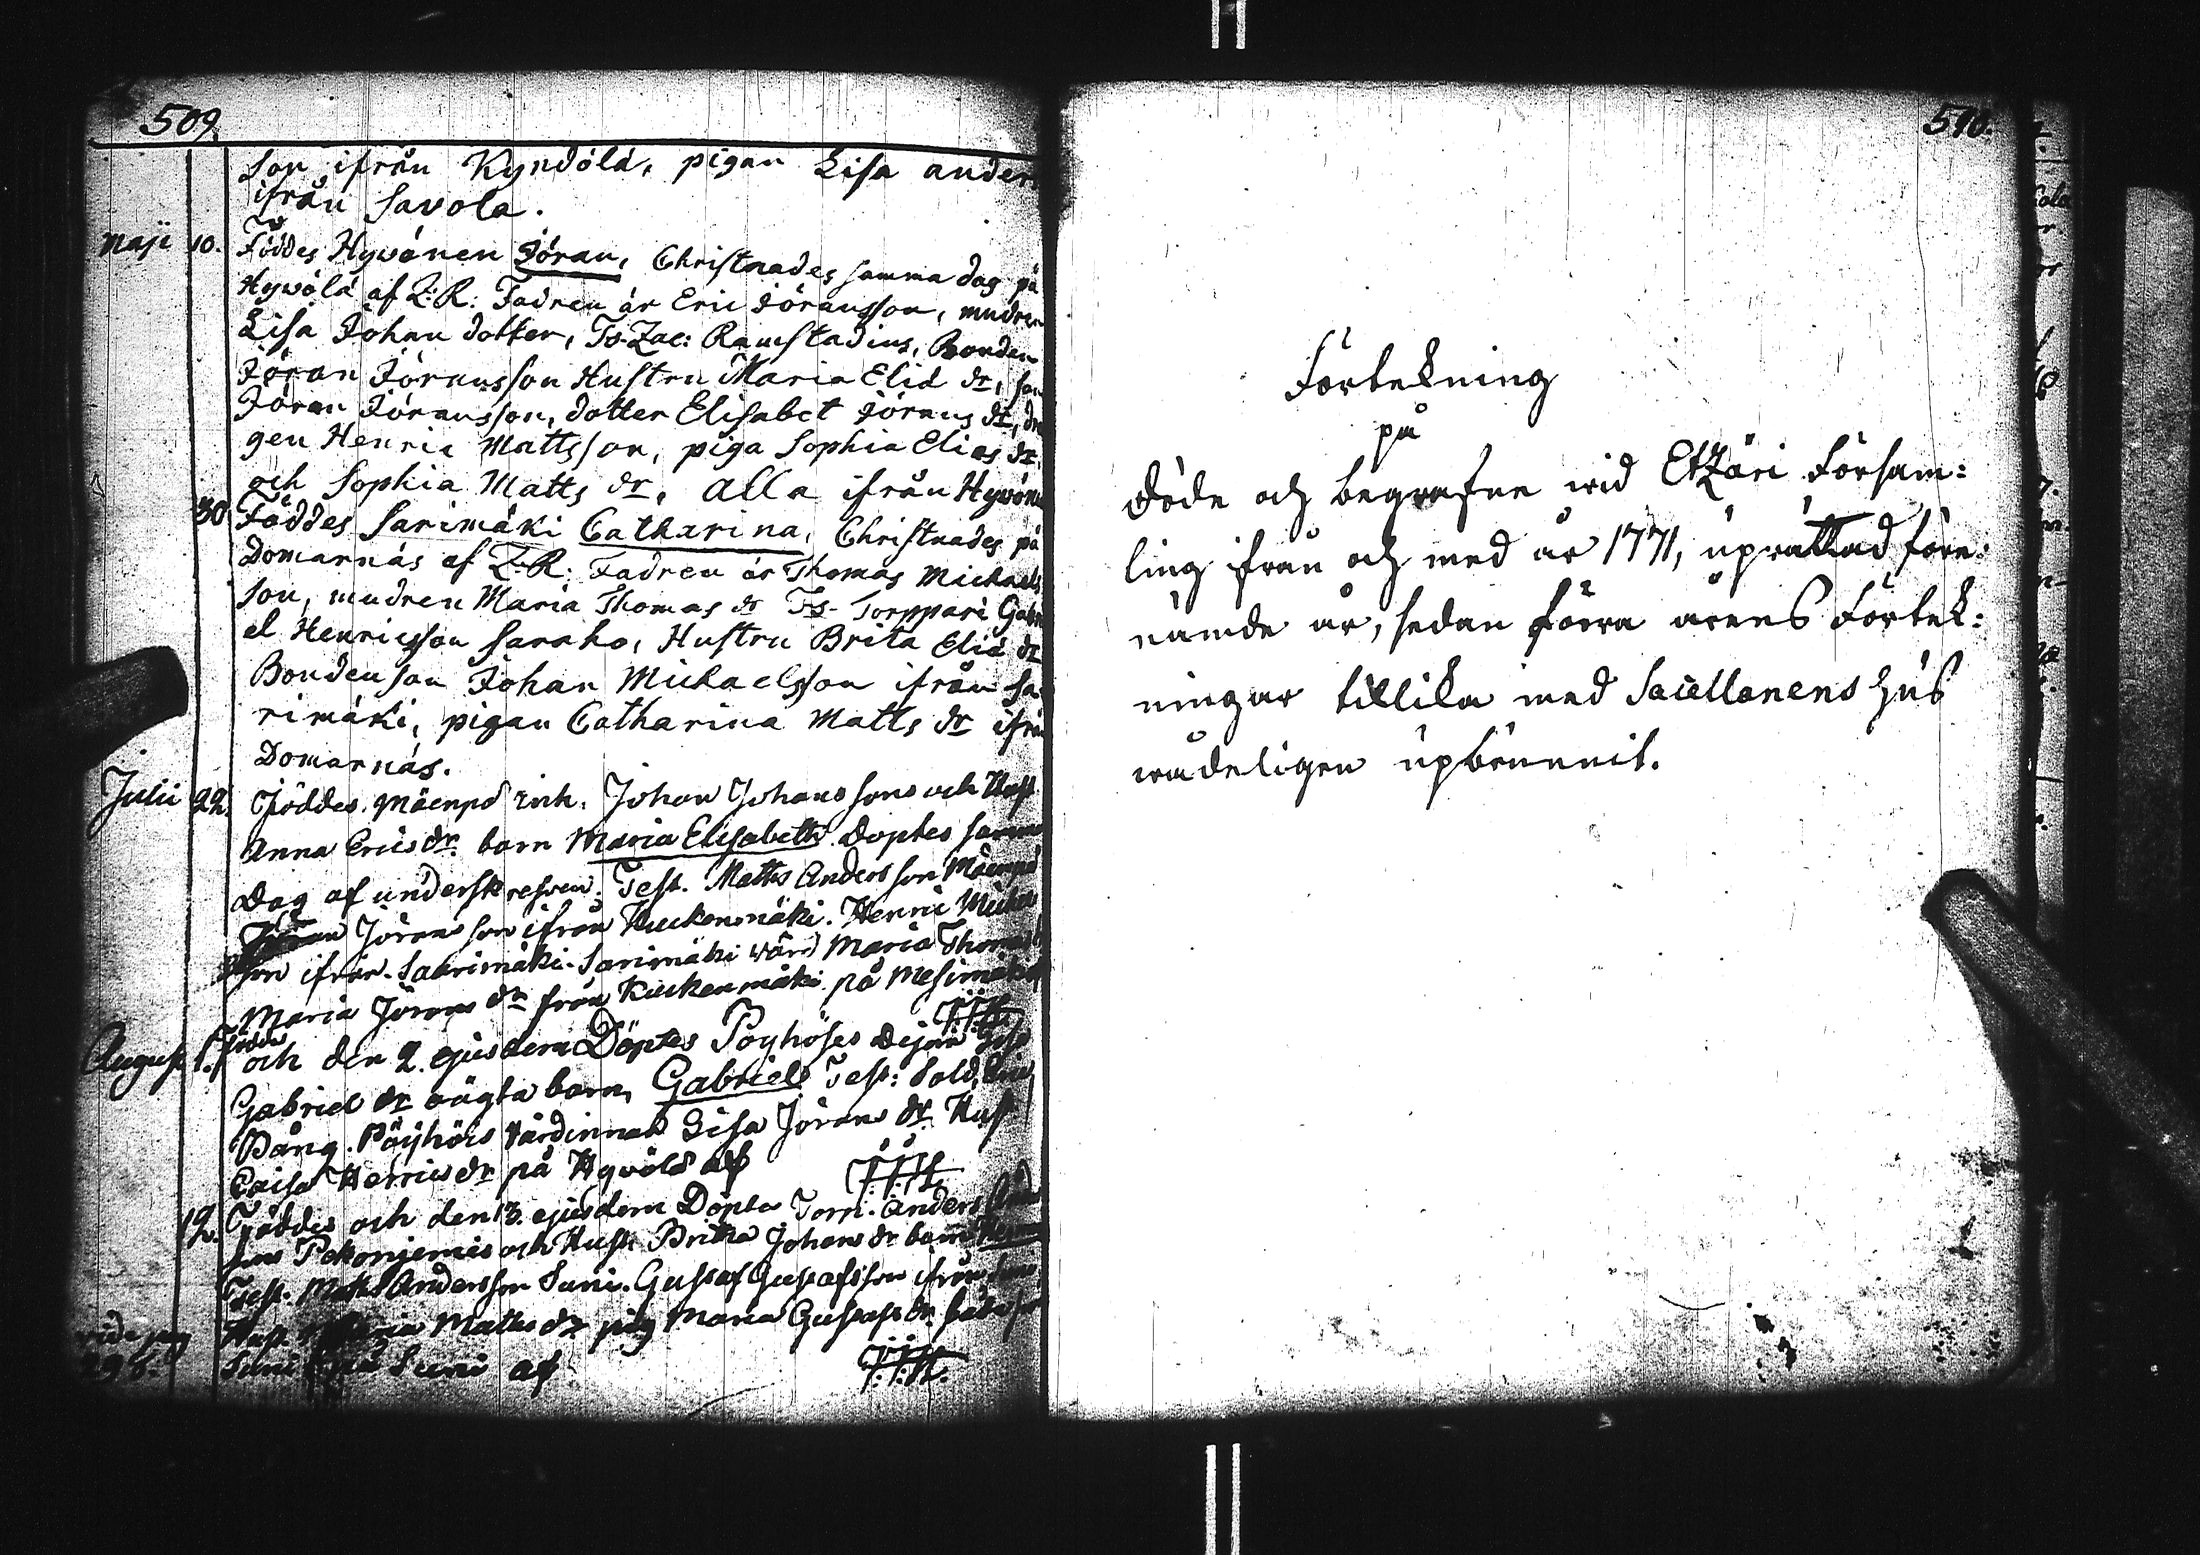 509.
son ifrån Kyndölä, pigan Lisa anders
ifrån Savola.
Maji 10. Föddes Hywönen Jöran, Christnades samma dag på
Hywölä af Z:R: Fadren är Eric Jöransson, mudren
Lisa Johan dotter, Ts. Zac: Ramstadius, Bonden
Jöran Jöransson Hustru Maria Elid dr, son
Jöran Jöransson, dotter Elisabet Jörans dr, drä
gen Henric Mattsson, piga Sophia Elias dr
och Sophia Matts dr, alla ifrån Hywöne
30 Föddes Sarimäki Catharina, Christnades på
Domarnäs af Z.R: Fadren är Thomas Michaels
son, mudren Maria Thomas dr Ts. Torppari Gabri
el Henricsson Saraho, Hustru Brita Elia dr
Bondenson Johan Michaelsson ifrån Sa
rimäki, pigan Catharina Matts dr ifrån
Domarnäs.
Julii 22. Föddes Mäenpä Inh. Johan Johanssons och Hust
Anna Erics dr. barn Maria Elisabeth Döptes samma
Dag af underskrefven. Test. Matts Andersson Mäenpä
Jöransson ifrån Kuckenmäki. Henric Michels
son ifrån Saarimäki. Sarimäki värd Maria Thomas
Maria Jörans dr från Kuckenmäki på Mesimäki af
J.J.H.
August 1. Föddes
och den 2. ejusdem Döptes Pöyhöses Dejan Lisa
Gabriel dr oägta barn, Gabriel Test: Sold. Eric
Bång. Pöyhöis Värdinnan Lisa Jörans dr. Hust
Caisa Henrics dr på Hyvölä af J.J.H.
12. Föddes och den 13. ejusdem Döpta Torp. Anders
sons Pekonjemis och Hust. Britha Johans dr barn
Test. Matts Andersson Suni. Gustaf Gustafsson ifrån Suni
Hust. Maria Matts dr pig Maria Gustafs dr. båda
Suni på Suni af J.J.H.
vide pag
298.
510.
Förtekning
på
Döde och begrafne wid Etzäri Försam:
ling ifrån och med år 1771, uprättad före:
nämde år, sedan förra årens Förtek:
ningar tillika med Sacellanens hus
wådeligen upbrunnit.